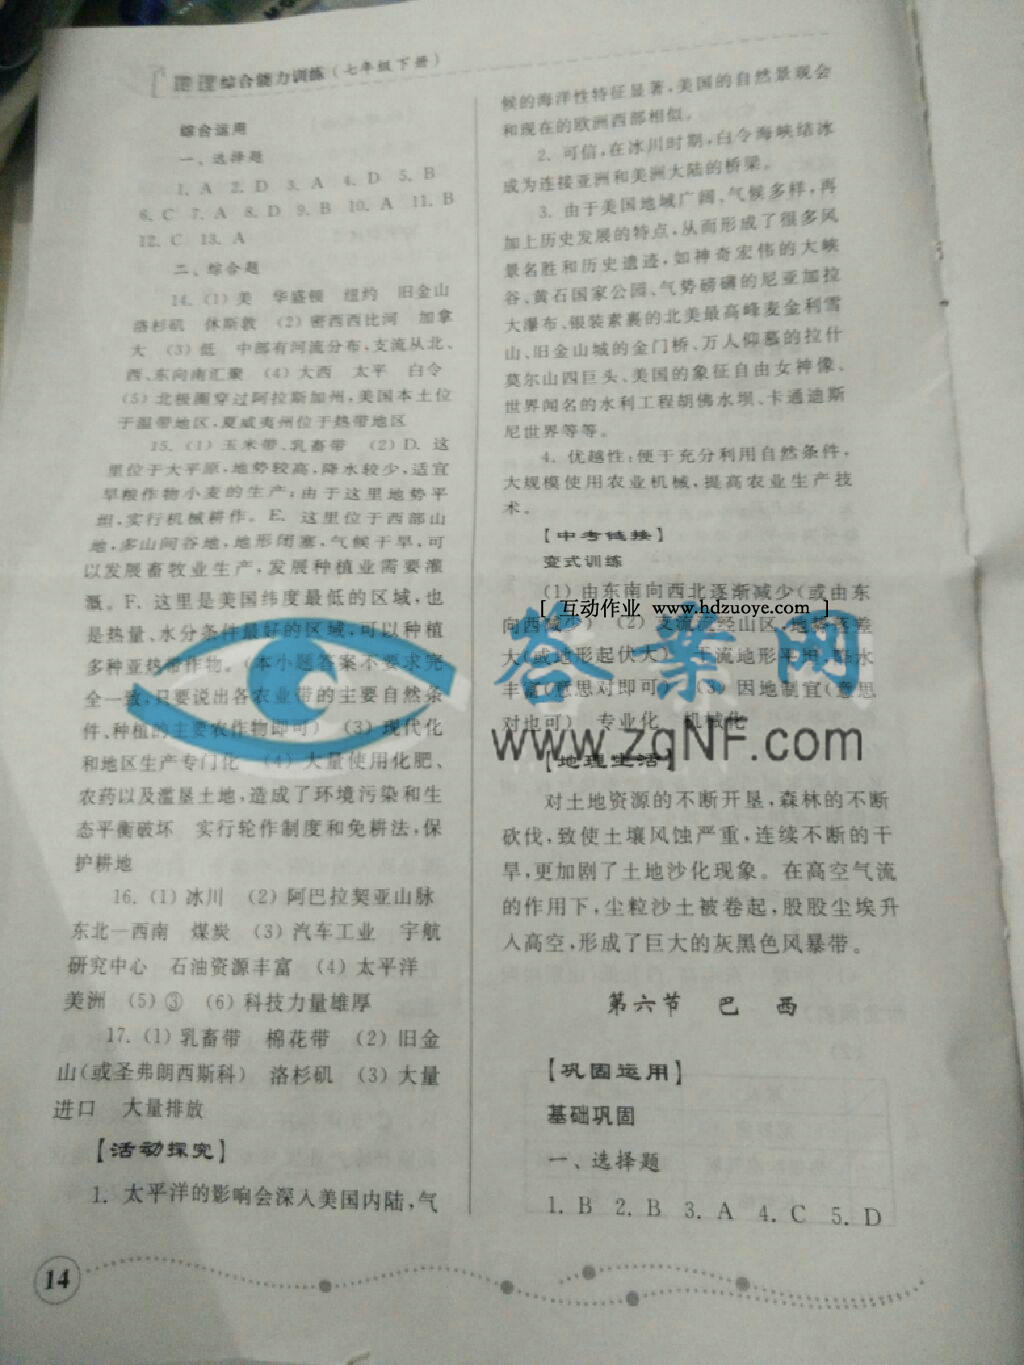 地理综合能力训练(七年级下册)
综合运用
一、选择题
1. A 2. D 3. A 4. D 5. B
6. C 7. A 8. D 9. B 10. A 11. B
12. C 13. A
二、综合题
14. (1) 美 华盛顿 纽约 旧金山
洛杉矶 休斯敦 (2) 密西西比河 加拿
大 (3) 低 中部有河流分布,支流从北、
西、东向南汇聚 (4) 大西 太平 白令
(5) 北极圈穿过阿拉斯加州,美国本土位
于温带地区,夏威夷州位于热带地区
15. (1) 玉米带、乳畜带 (2) D. 这
里位于大平原,地势较高,降水较少,适宜
旱粮作物小麦的生产;由于这里地势平
坦,实行机械耕作。E. 这里位于西部山
地,多山间谷地,地形闭塞,气候干旱,可
以发展畜牧业生产,发展种植业需要灌
溉。F. 这里是美国纬度最低的区域,也
是热量、水分条件最好的区域,可以种植
多种亚热带作物。(本小题答案不要求完
全一致,只要说出各农业带的主要自然条
件、种植的主要农作物即可) (3) 现代化
和地区生产专门化 (4) 大量使用化肥、
农药以及滥垦土地,造成了环境污染和生
态平衡破坏 实行轮作制度和免耕法,保
护耕地
16. (1) 冰川 (2) 阿巴拉契亚山脉
东北—西南 煤炭 (3) 汽车工业 宇航
研究中心 石油资源丰富 (4) 太平洋
美洲 (5) ③ (6) 科技力量雄厚
17. (1) 乳畜带 棉花带 (2) 旧金
山(或圣弗朗西斯科) 洛杉矶 (3) 大量
进口 大量排放
【活动探究】
1. 太平洋的影响会深入美国内陆,气
候的海洋性特征显著,美国的自然景观会
和现在的欧洲西部相似。
2. 可信,在冰川时期,白令海峡结冰
成为连接亚洲和美洲大陆的桥梁。
3. 由于美国地域广阔、气候多样,再
加上历史发展的特点,从而形成了很多风
景名胜和历史遗迹,如神奇宏伟的大峡
谷、黄石国家公园、气势磅礴的尼亚加拉
大瀑布、银装素裹的北美最高峰麦金利雪
山、旧金山城的金门桥、万人仰慕的拉什
莫尔山四巨头、美国的象征自由女神像、
世界闻名的水利工程胡佛水坝、卡通迪斯
尼世界等等。
4. 优越性:便于充分利用自然条件,
大规模使用农业机械,提高农业生产技
术。
【中考链接】
变式训练
(1) 由东南向西北逐渐减少(或由东
[ 互动作业 www.hdzuoye.com ]
向西减少) (2) 支流流经山区,地势落差
大(或地形起伏大) 干流地形平坦 降水
丰富(意思对即可) (3) 因地制宜(意思
对也可) 专业化 机械化
答案网
www.zqNF.com
【地理生活】
对土地资源的不断开垦,森林的不断
砍伐,致使土壤风蚀严重,连续不断的干
旱,更加剧了土地沙化现象。在高空气流
的作用下,尘粒沙土被卷起,股股尘埃升
入高空,形成了巨大的灰黑色风暴带。
第六节 巴 西
【巩固运用】
基础巩固
一、选择题
1. B 2. B 3. A 4. C 5. D
14